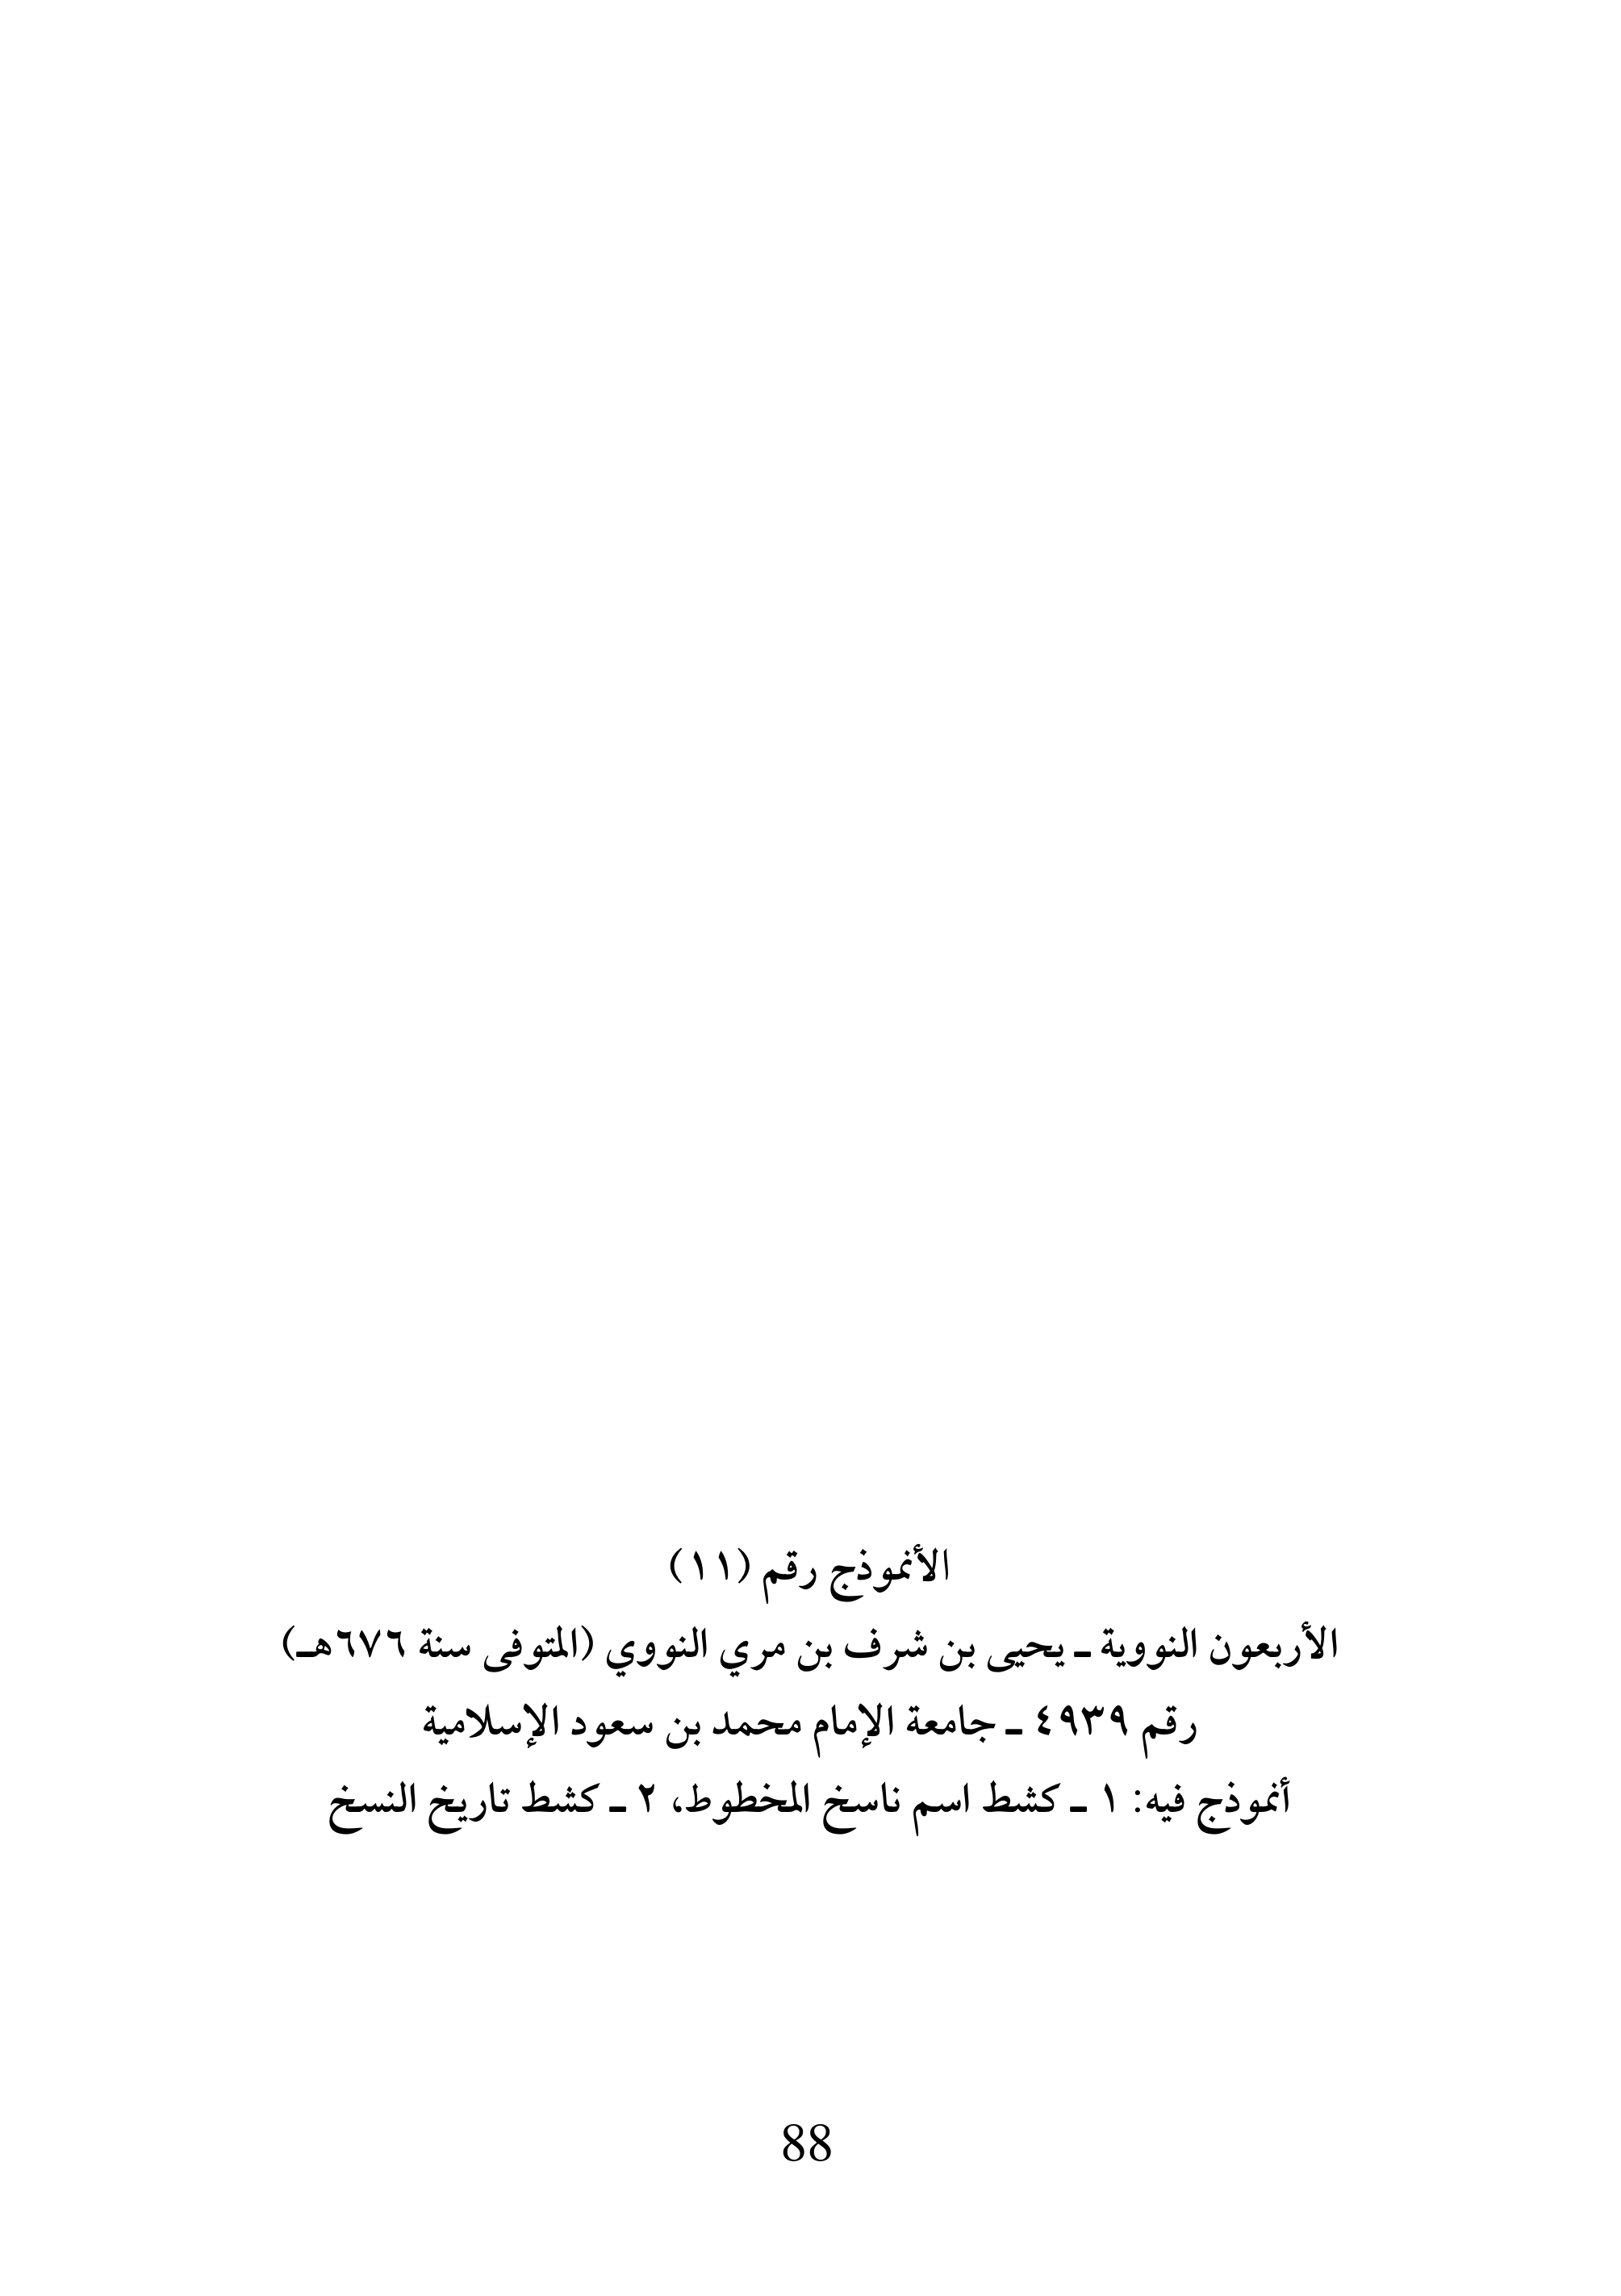 الأنموذج رقم (١١)
الأربعون النووية ـ يحيى بن شرف بن مري النووي (المتوفى سنة ٦٧٦هـ)
رقم ٤٩٣٩ ـ جامعة الإمام محمد بن سعود الإسلامية
أنموذج فيه: ١ ـ كشط اسم ناسخ المخطوط، ٢ ـ كشط تاريخ النسخ
88